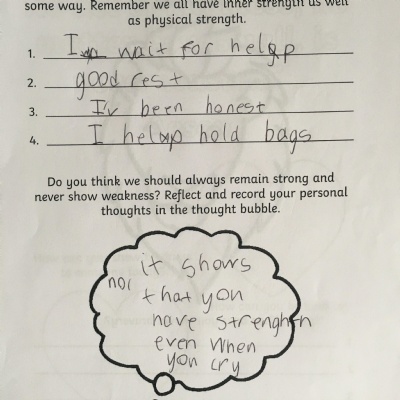 some way. Remember we all have inner strength as well
as physical strength.
1. I wait for help
2. good rest
3. I'v been honest
4. I help hold bags
Do you think we should always remain strong and
never show weakness? Reflect and record your personal
thoughts in the thought bubble.
it shows
no
that you
have strenghth
even when
you cry